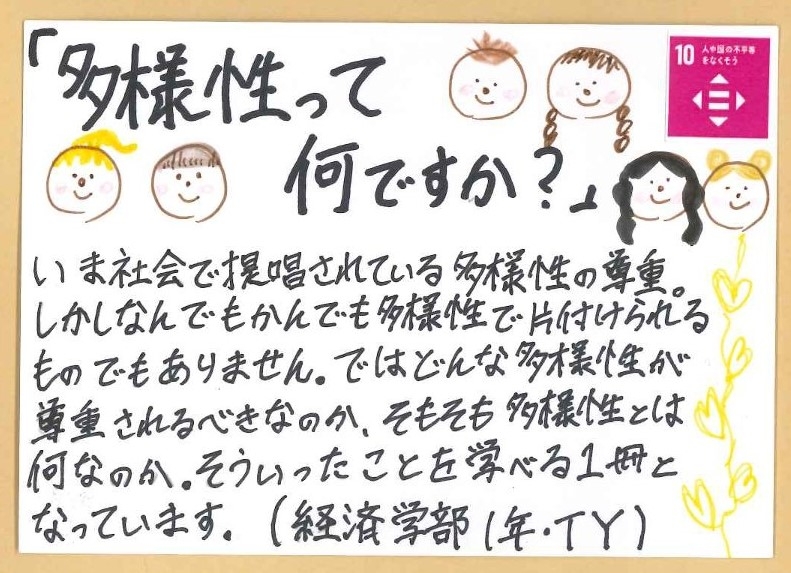 「多様性って
何ですか？」
10 人や国の不平等
をなくそう
いま社会で提唱されている多様性の尊重。
しかしなんでもかんでも多様性で片付けられる
ものでもありません。ではどんな多様性が
尊重されるべきなのか、そもそも多様性とは
何なのか。そういったことを学べる1冊と
なっています。(経済学部1年・TY)